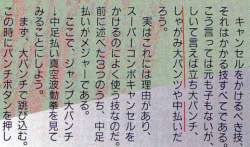 キャンセルをかけるべき技、
それはかかる技すべてである。
こう言っては元も子もないが、
しいて言えば立ち大パンチ、
しゃがみ大パンツや中払いだ
ろう。
実はこれには理由があり、
スーパーコンボキャンセルを
かけるのによく使う技なのだ。
前に述べた3つのうち、中足
払いがメジャーである。
ここで、ジャンプ大パンチ
→中足払い真空波動拳を見て
みることにしよう。
まず、大パンチで跳び込む。
この時にパンチボタンを押し